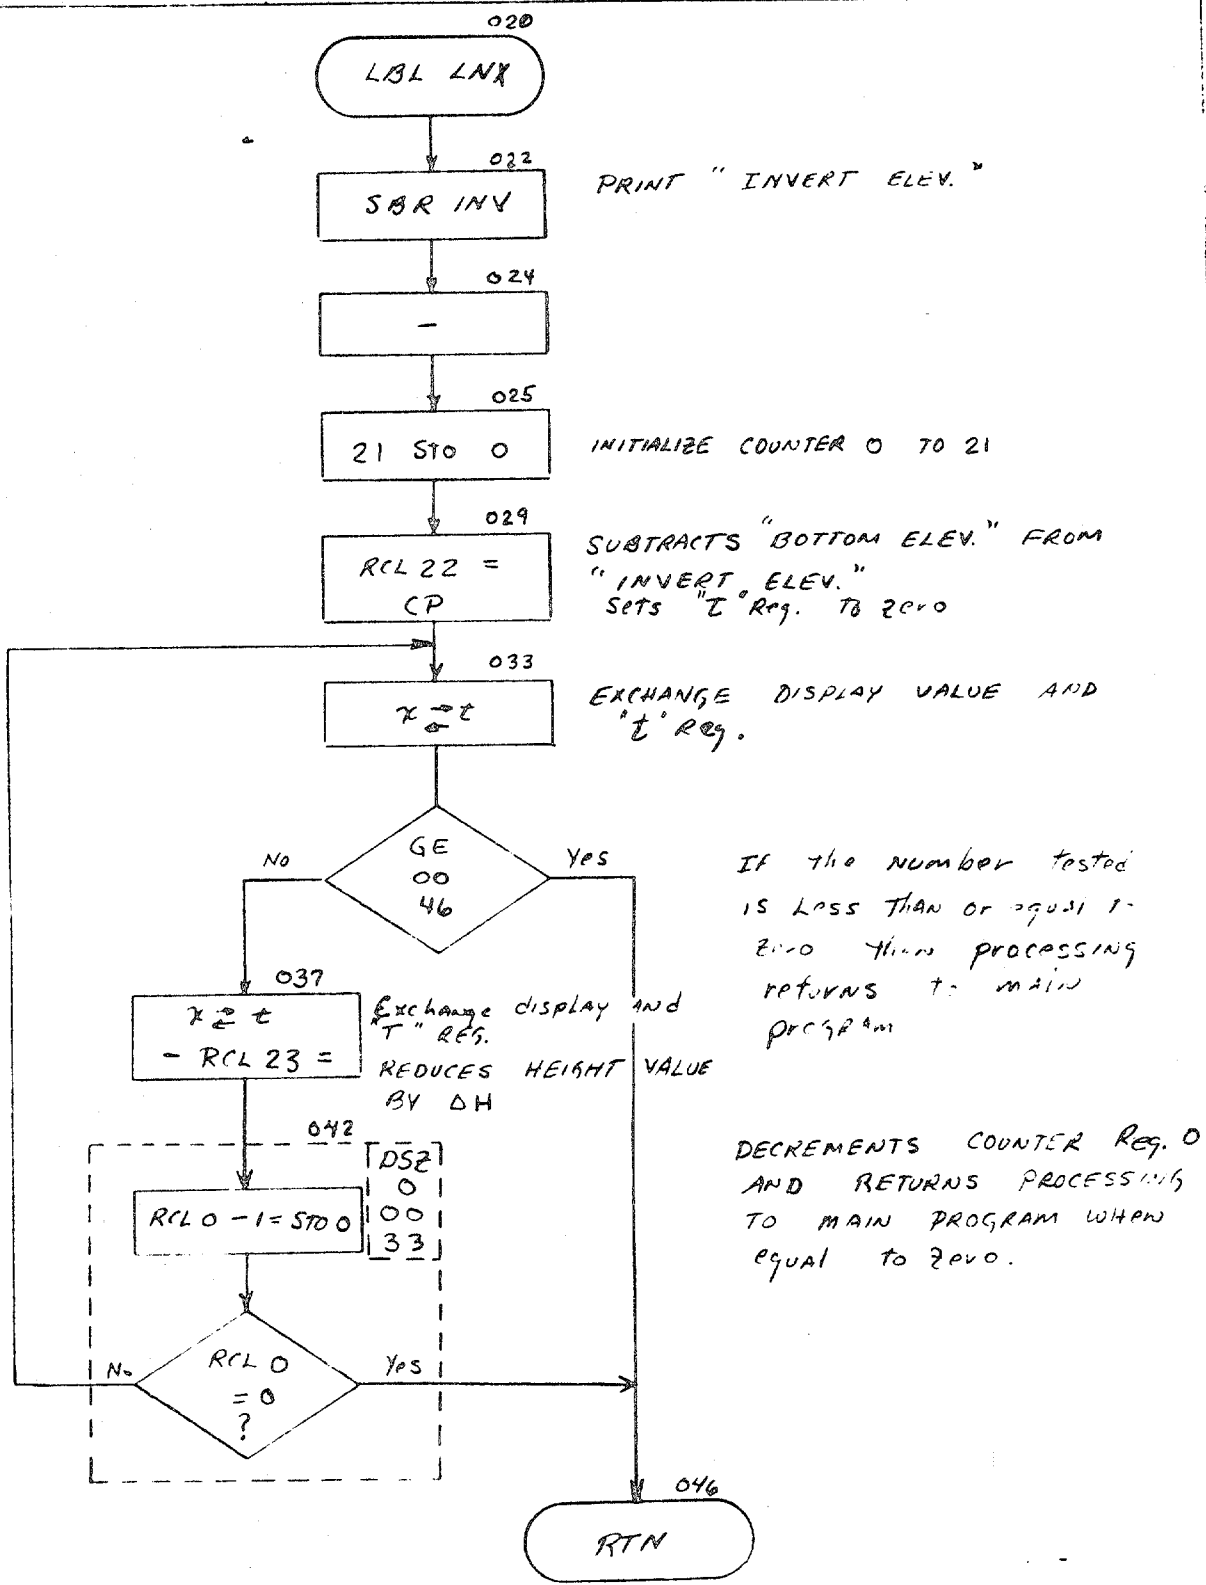 020
LBL LNX
022
SBR INV
PRINT "INVERT ELEV."
024
-
025
21 STO 0
INITIALIZE COUNTER 0 TO 21
029
RCL 22 =
CP
SUBTRACTS "BOTTOM ELEV." FROM
"INVERT ELEV."
Sets "t" Reg. To zero
033
x ⇄ t
EXCHANGE DISPLAY VALUE AND
"t" Reg.
GE
00
46
No
Yes
If the number tested
is Less THAN or equal to
Zero then processing
returns to main
program
037
x ⇄ t
- RCL 23 =
Exchange display and
"T" REG.
REDUCES HEIGHT VALUE
BY ΔH
042
DSZ
0
00
33
RCL 0 - 1 = STO 0
DECREMENTS COUNTER Reg. 0
AND RETURNS PROCESSING
TO MAIN PROGRAM WHEN
equal to zero.
RCL 0
= 0
?
No
Yes
046
RTN